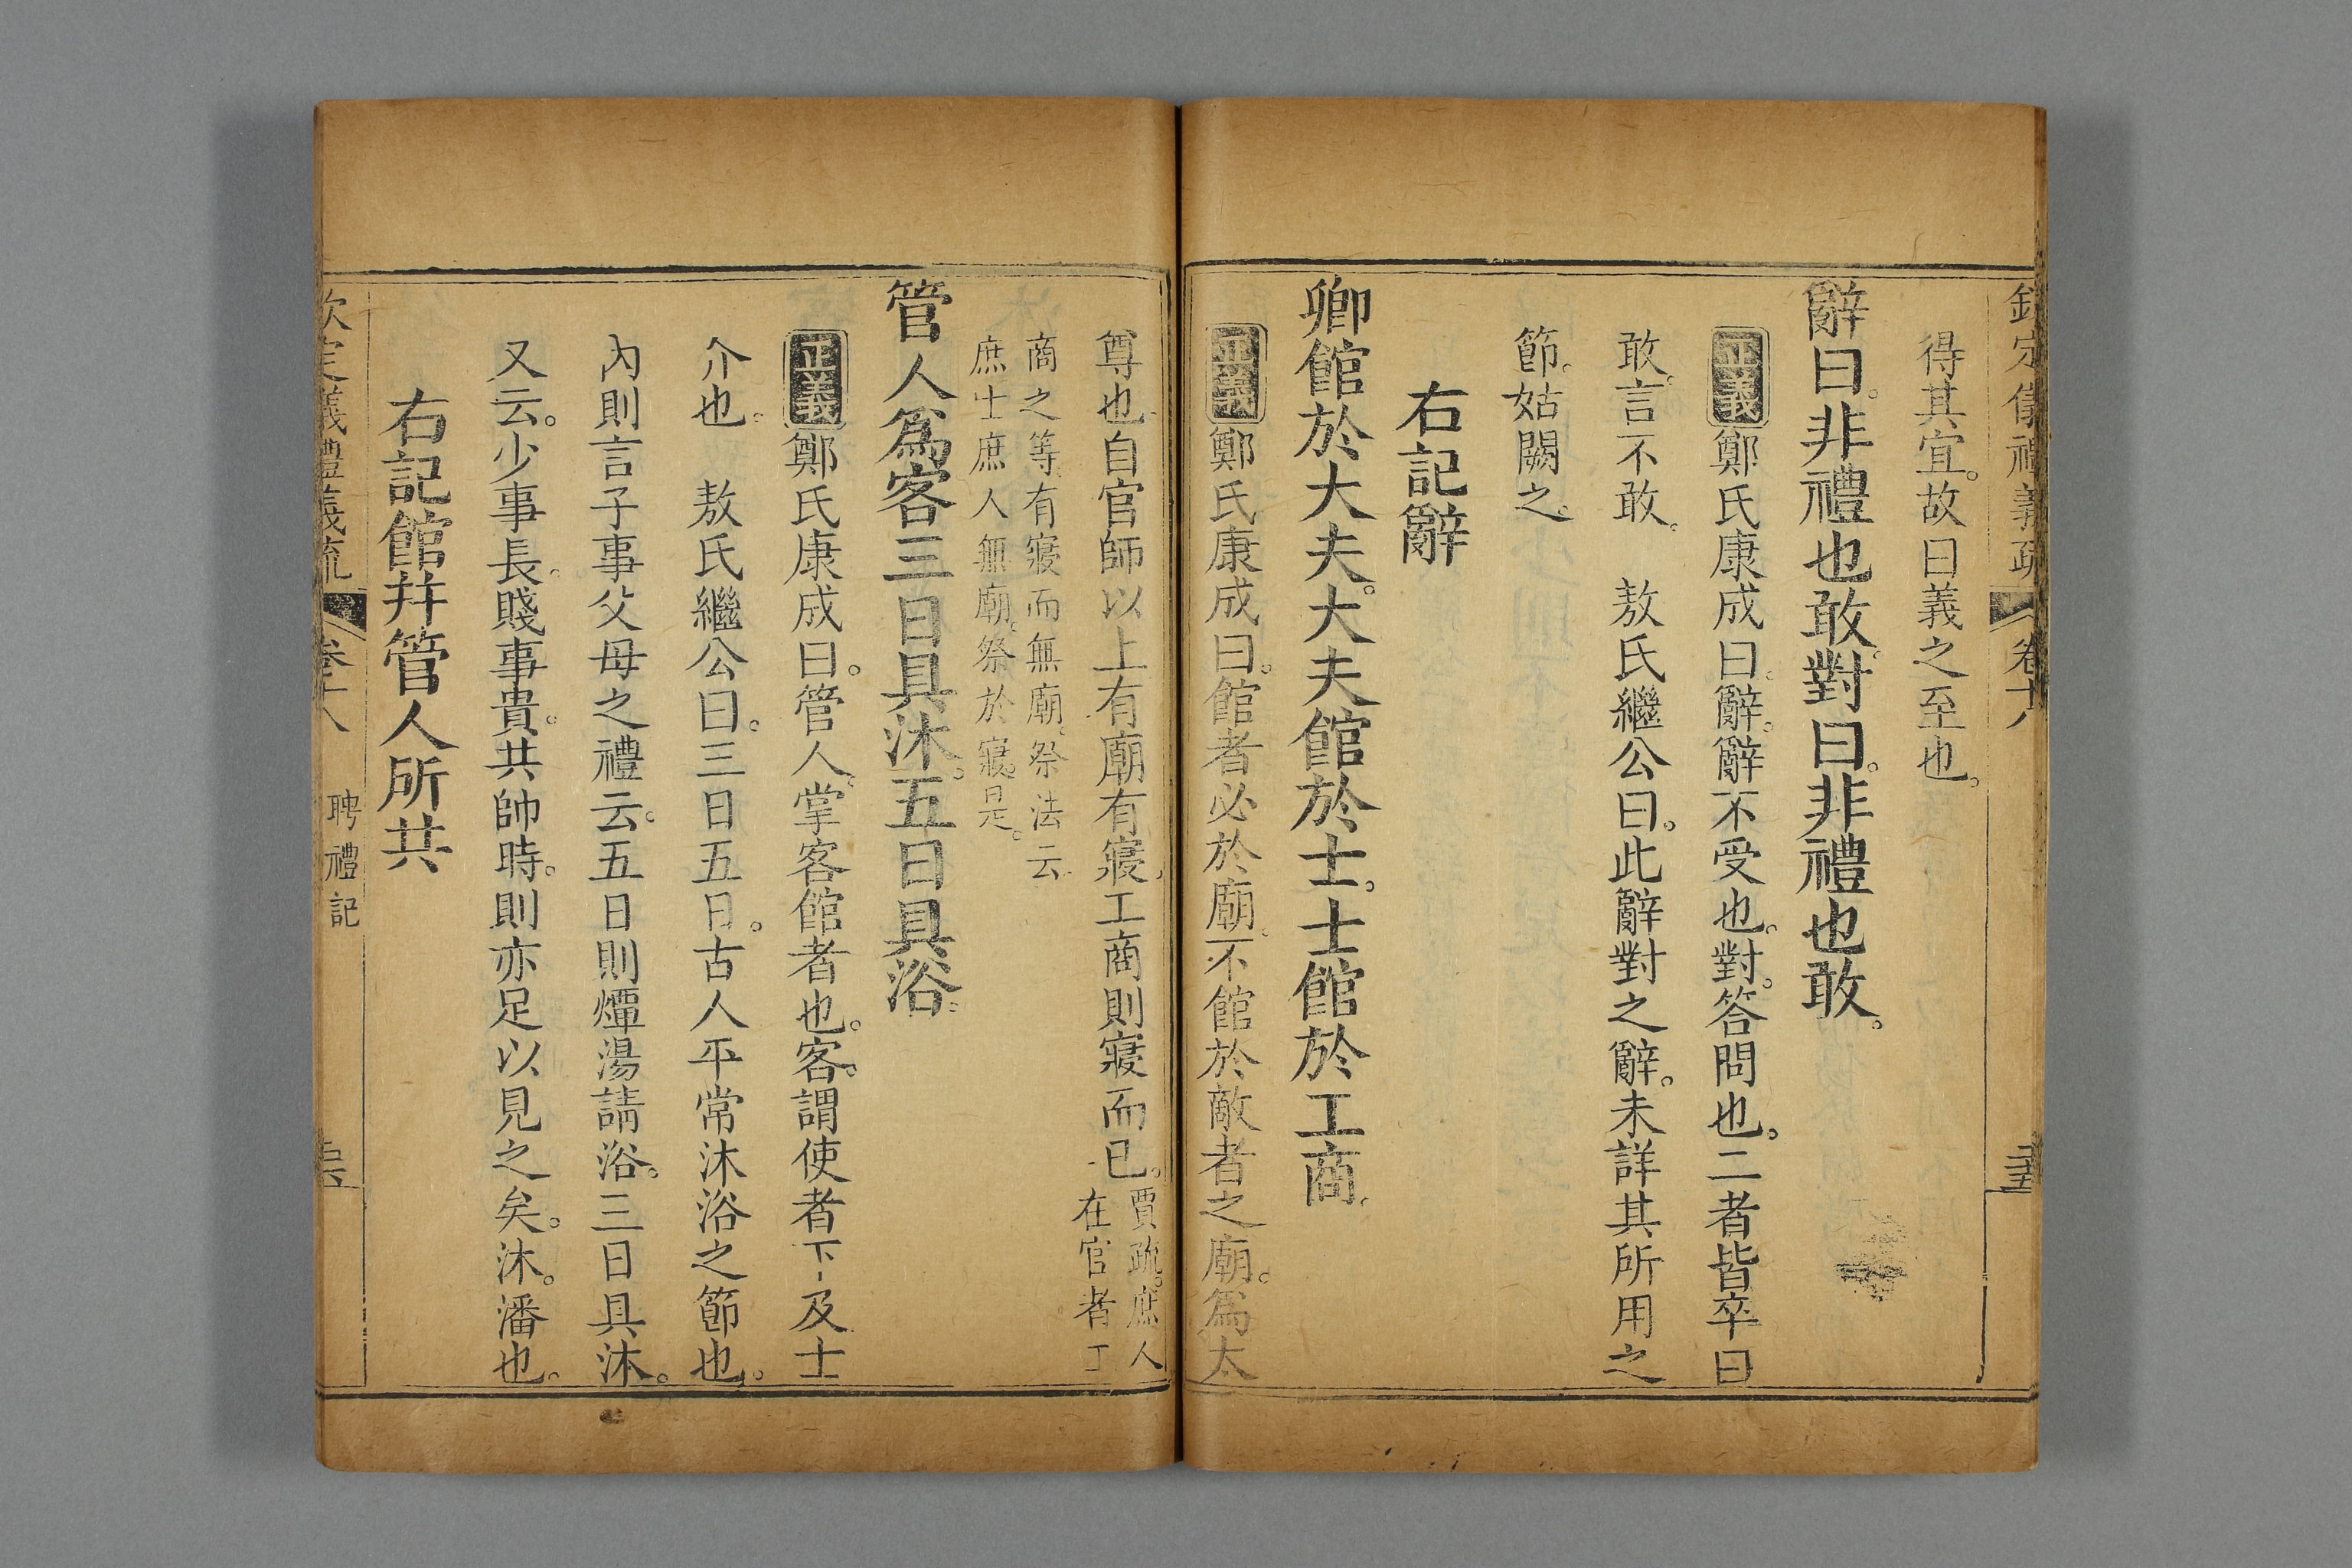 欽定儀禮義疏 卷十八
得其宜。故曰義之至也。
辭曰。非禮也敢。對曰。非禮也敢。
正義鄭氏康成曰。辭。辭不受也。對。答問也。二者皆卒曰
敢。言不敢。 敖氏繼公曰。此辭對之辭。未詳其所用之
節。姑闕之。
右記辭
卿館於大夫。大夫館於士。士館於工商。
正義鄭氏康成曰。館者必於廟。不館於敵者之廟。爲太
尊也。自官師以上有廟有寢。工商則寢而已。賈疏。庶人
在官者工
商之等。有寢而無廟。祭法云。
庶士庶人無廟。祭於寢。是。
管人爲客三日具沐。五日具浴。
正義鄭氏康成曰。管人。掌客館者也。客。謂使者下及士
介也。 敖氏繼公曰。三日五日。古人平常沐浴之節也。
內則言子事父母之禮云。五日則燂湯請浴。三日具沐。
又云。少事長。賤事貴。共帥時。則亦足以見之矣。沐。潘也。
右記館幷管人所共
欽定儀禮義疏 卷十八 聘禮記